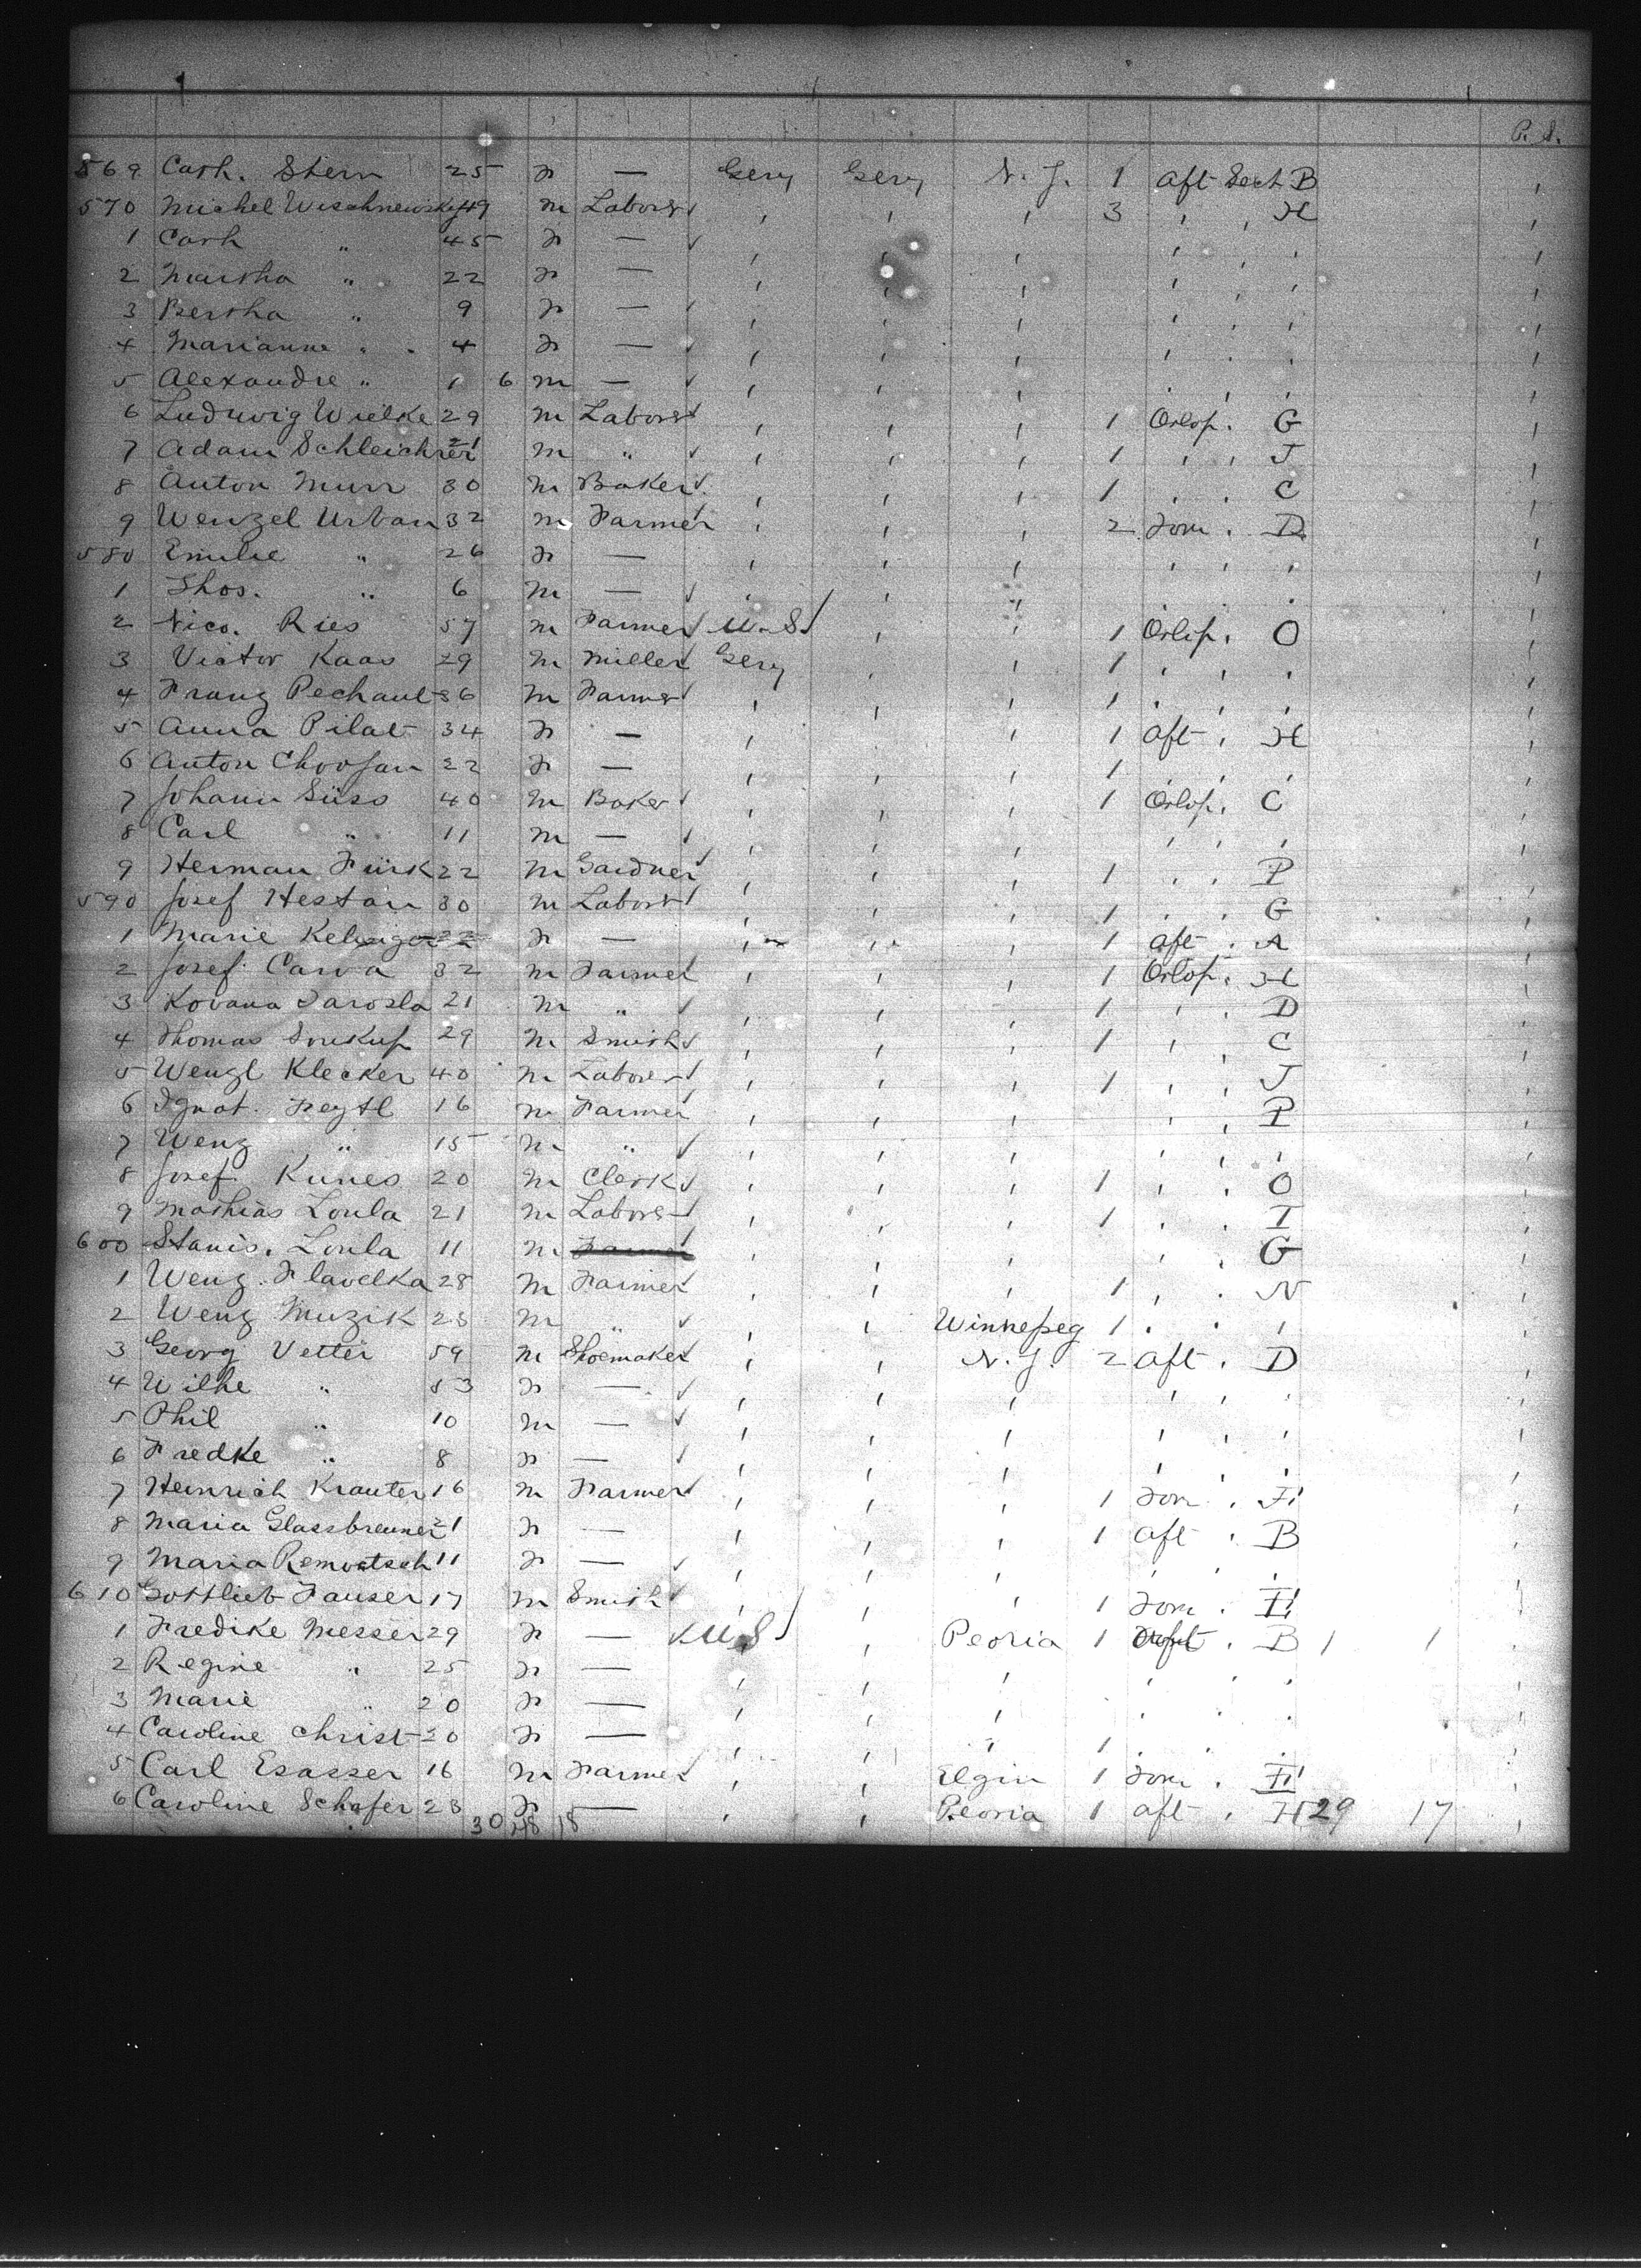 P. S.
569 Cath. Stern 25 F — Gery Gery N. Y. 1 Aft Sect B
570 Michel Wischnewsky 49 m Labore ' ' ' 3 ' ' H
1 Cath " 45 F — ' ' ' ' ' '
2 Martha " 22 F — ' ' ' ' ' '
3 Bertha " 9 F — ' ' ' ' ' '
4 Marianne " 4 F — ' ' ' ' ' '
5 Alexandre " 1 6 m — ' ' ' ' ' '
6 Ludwig Wielke 29 m Labore ' ' ' 1 Orlop. G
7 Adam Schleichrer 21 m " ' ' ' 1 ' ' J
8 Anton Murr 30 m Baker ' ' ' 1 ' ' C
9 Wenzel Urban 32 m Farmer ' ' ' 2 Forw. D
580 Emilie " 26 F — ' ' ' ' ' '
1 Thos. " 6 m — ' ' ' '
2 Nico. Ries 57 m Farmer U.S. ' ' 1 Orlop. O
3 Victor Kaas 29 m Miller Gery ' 1 ' ' '
4 Franz Pechault 36 m Farmer ' ' ' 1 ' ' '
5 Anna Pilat 34 F — ' ' ' 1 Aft ' H
6 Anton 22 F — ' ' ' 1 ' ' '
7 Johann Süss 40 m Baker ' ' ' 1 Orlop. C
8 Carl " 11 m — ' ' ' ' ' '
9 Herman Fürk 22 m Gardner ' ' ' 1 ' ' P
590 Josef Hestan 30 m Labore ' ' ' 1 ' ' G
1 Marie 22 F — ' ' ' 1 Aft ' A
2 Josef Carva 32 m Farmer ' ' ' 1 Orlop. H
3 Kovana Jarosla 21 m " ' ' ' 1 ' ' D
4 Thomas Soukup 29 m Smith ' ' ' 1 ' ' C
5 Wenzl Klecker 40 m Laborer ' ' ' 1 ' ' J
6 Ignat. Feytl 16 m Farmer ' ' ' ' ' P
7 Wenz " 15 m " ' ' ' ' ' '
8 Josef Kunes 20 m Clerk ' ' ' 1 ' ' O
9 Mathias Loula 21 m Labore ' ' ' 1 ' ' I
600 Stanis. Loula 11 m Farmer ' ' ' ' ' G
1 Wenz. Hlavelka 28 m Farmer ' ' ' 1 ' ' N
2 Wenz Muzik 23 m " ' ' Winnepeg 1 ' ' '
3 Georg Vetter 59 m Shoemaker ' ' N. Y. 2 Aft ' D
4 Wilhe " 53 F — ' ' ' ' ' '
5 Phil " 10 m — ' ' ' ' ' '
6 Fredke " 8 F — ' ' ' ' ' '
7 Heinrich Krauter 16 m Farmer ' ' ' 1 Forw. F'
8 Maria Glassbrenner 21 F — ' ' ' 1 Aft ' B
9 Maria Remvatsch 11 F — ' ' ' ' ' '
610 Gottlieb Fauser 17 m Smith ' ' ' 1 Forw. F'
1 Fredike Messer 29 F — U.S. ' Peoria 1 Aft ' B 1 1
2 Regine " 25 F — ' ' ' ' ' '
3 Marie " 20 F — ' ' ' ' ' '
4 Caroline Christ 20 F — ' ' ' 1 ' ' '
5 Carl Esasser 16 m Farmer ' ' Elgin 1 Forw. F'
6 Caroline Schafer 23 F — ' ' Peoria 1 Aft ' H 29 17
30 48 18